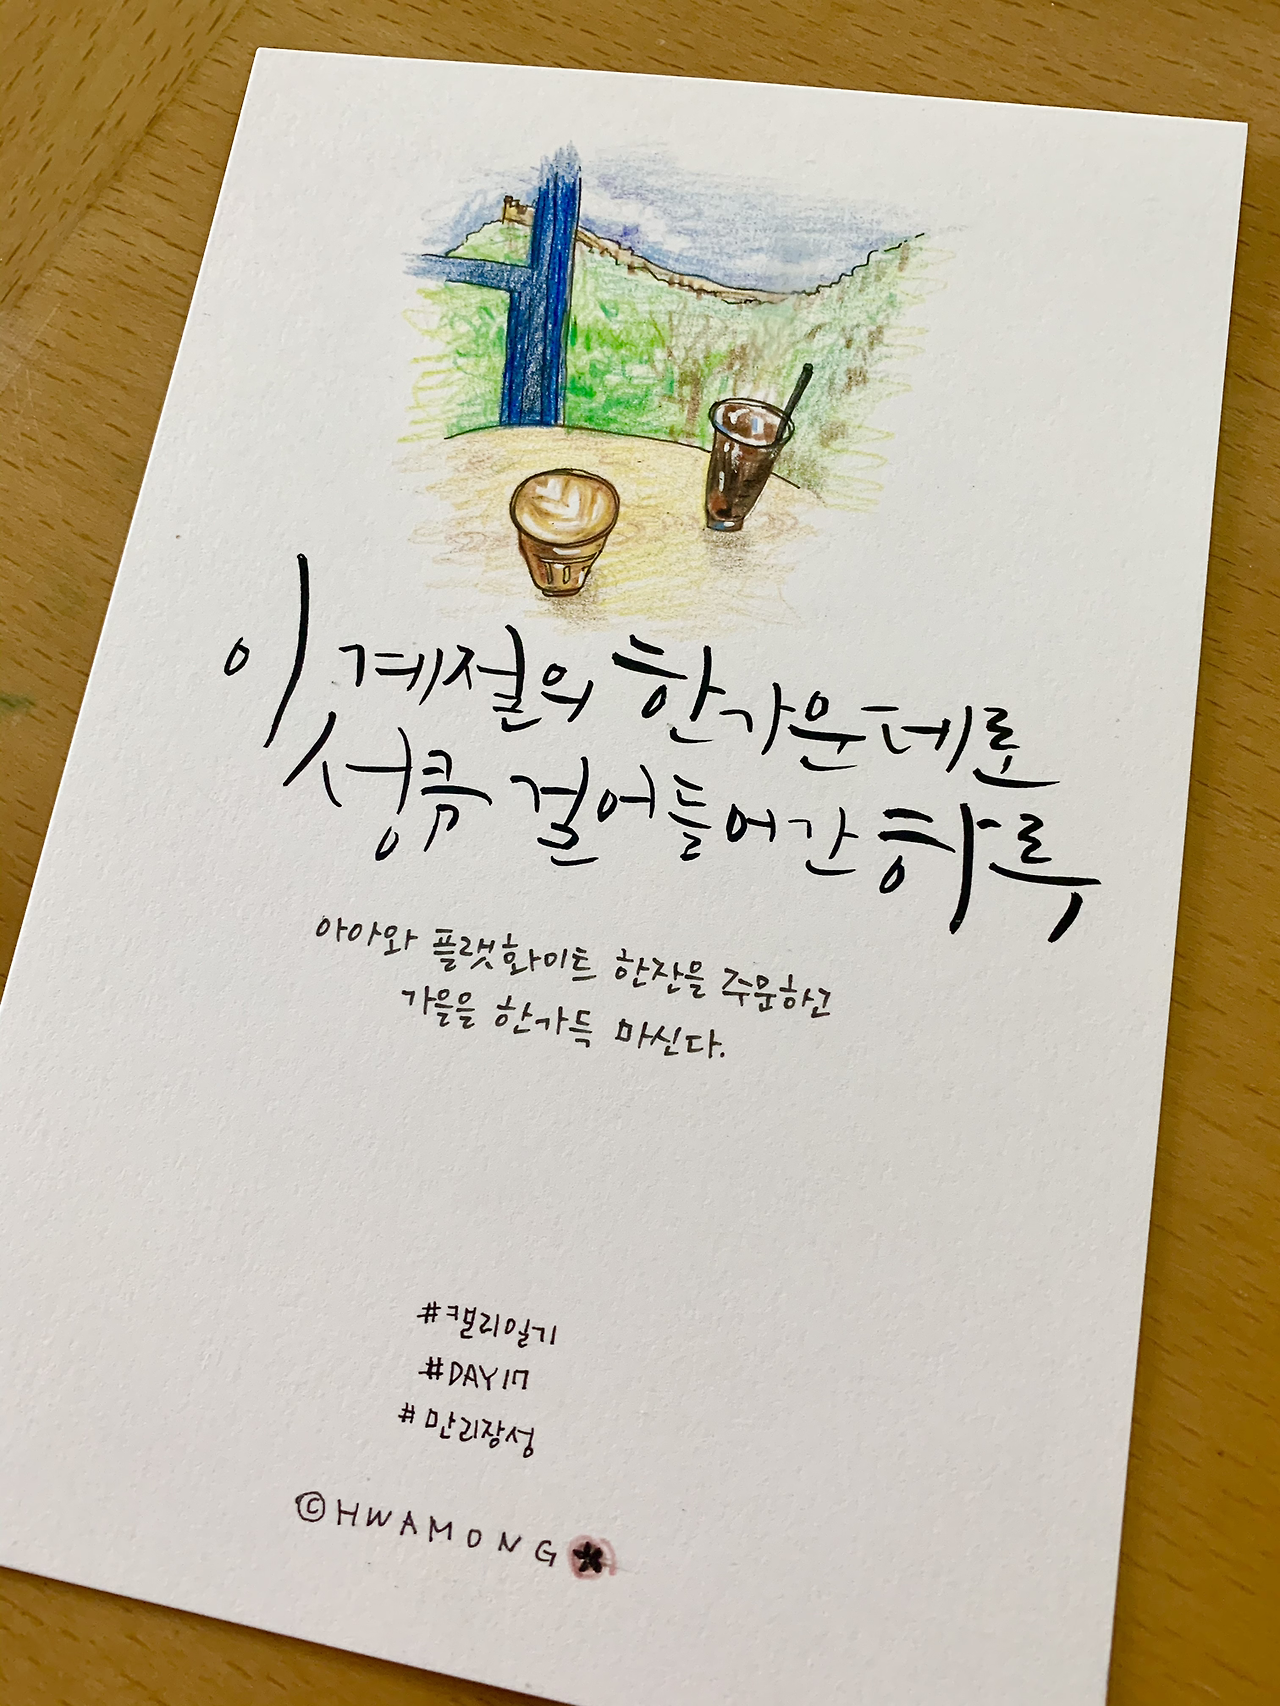 이 계절의 한가운데로
성큼 걸어들어간 하루
아아와 플랫화이트 한잔을 주문하고
가을을 한가득 마신다.
#캘리일기
#DAY17
#만리장성
©HWAMONG